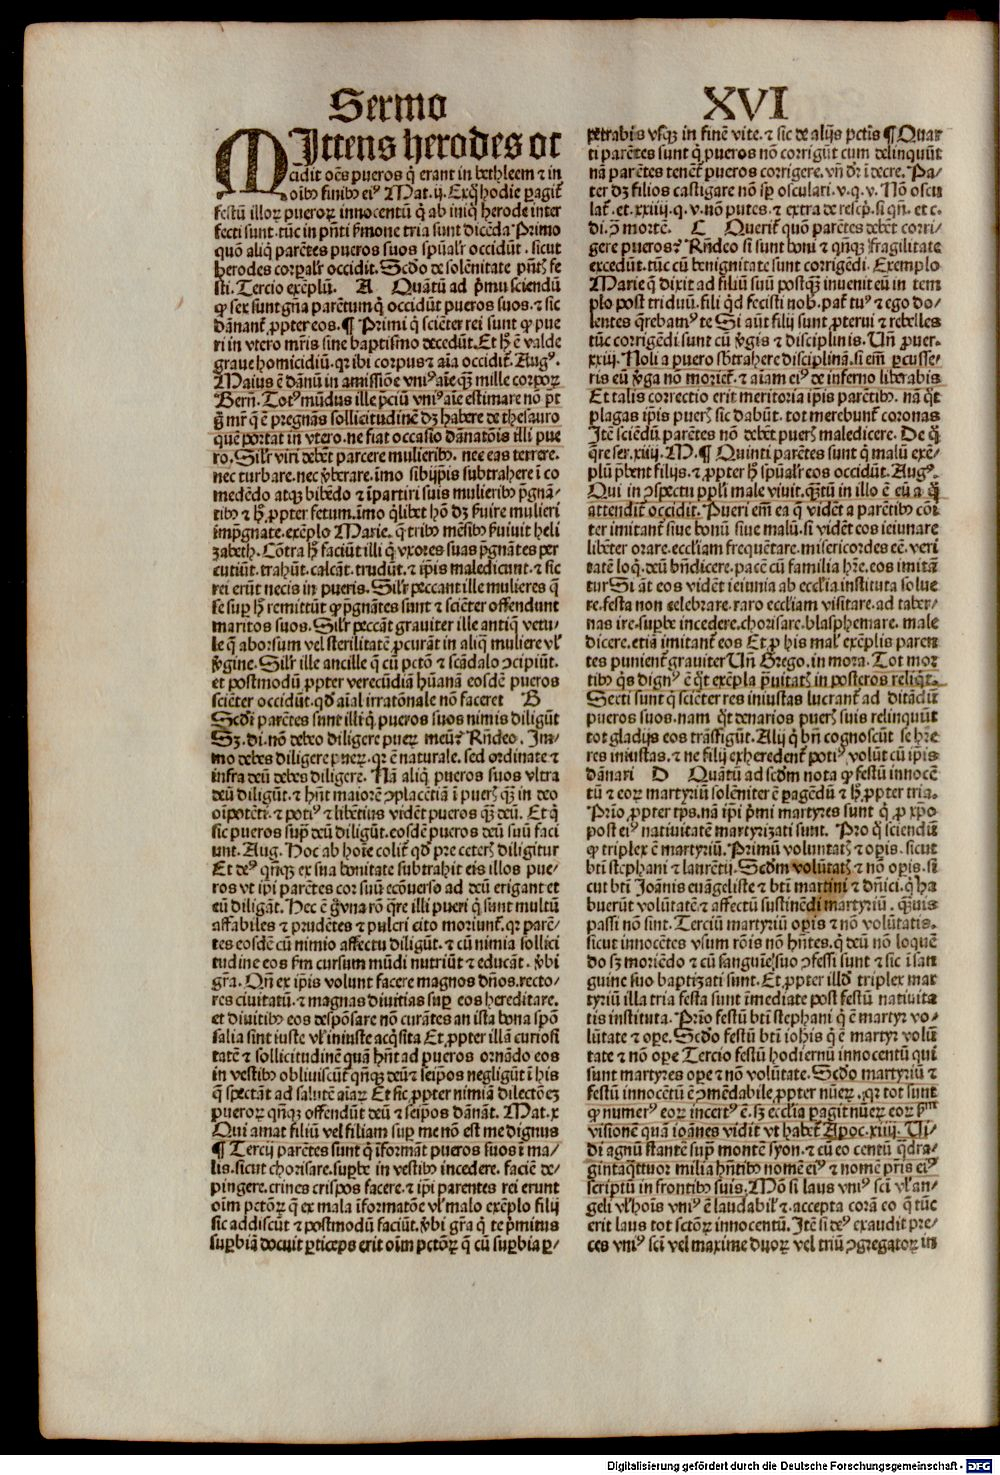 Sermo XVI
MIttens herodes oc
cidit oẽs pueros q̃ erant in bethleem ⁊ in
oĩbꝰ finibꝰ eiꝰ Mat.ij. Exq̃ hodie pagit᷑
festũ illoꝝ pueroꝝ innocentũ q̃ ab iniq̃ herode inter
fecti sunt. tũc in pñti ßmone tria sunt dicẽda Primo
quõ aliq̃ parẽtes pueros suos spũalr̃ occidũt. sicut
herodes corꝑalr̃ occidit. Scďo de solẽnitate pñtꝭ fe
sti. Tercio exẽplũ. A Quãtũ ad p̃mu sciendũ
ꝙ sex sunt gña parẽtum q̃ occidũt pueros suos. ⁊ sic
dãnant᷑ ꝓpter eos. ¶ Primi q̃ sciẽter rei sunt ꝙ pue
ri in vtero mr̃is sine baptismo decedũt. Et h̃ ẽ valde
graue homicidiũ. qꝛ ibi corpus ⁊ aĩa occidit᷑. Augꝰ.
Maius ẽ dãnũ in amissiõe vniꝰ aĩe q̃ꝫ mille corpoꝝ
Bern. Totꝰ mũdus ille p̃ciũ vniꝰ aĩe estimare nõ pt̃
g̃ mr̃ q̃ ẽ pregnãs sollicitudinẽ dꝫ habere de thesauro
quẽ portat in vtero. ne fiat occasio dãnatõis illi pue
ro. Silr̃ viri debẽt parcere mulieribꝰ. nec eas terrere.
nec turbare. nec v̾berare. ĩmo sibijp̃is subtrahere ĩ co
medẽdo atqꝫ bibẽdo ⁊ ĩpartiri suis mulieribꝰ p̃gnã⸗
tibꝰ ⁊ h̃ ꝓpter fetum. ĩmo q̃libet hõ dꝫ ßuire mulieri
imp̃gnate. exẽplo Marie. q̃ tribꝰ mẽsibꝰ ßuiuit heli
zabeth. Cõtra h̃ faciũt illi q̃ vxores suas p̃gnãtes per
cutiũt. trahũt. calcãt. trudũt. ⁊ ip̃is maledicunt. ⁊ sic
rei erũt necis in pueris. Silr̃ peccant ille mulieres q̃
se suꝑ h̃ remittũt ꝙ p̃gnãtes sunt ⁊ sciẽter offendunt
maritos suos. Silr̃ peccãt grauiter ille antiq̃ vetu⸗
le q̃ aborsum vel sterilitatẽ ꝓcurãt in aliq̃ muliere vl̃
v̾gine. Silr̃ ille ancille q̃ cũ pctõ ⁊ scãdalo ↄcipiũt.
et postmodũ ꝓpter verecũdiã hũanã eosdẽ pueros
sciẽter occidũt. qď aĩal irratõnale nõ faceret B
Scďi parẽtes sunt illi q̃ pueros suos nimis diligũt
Sꝫ. di. nõ debeo diligere pueꝝ meũ? Rñdeo. Im⸗
mo debes diligere pueꝝ. qꝛ ẽ naturale. sed ordinate ⁊
infra deũ debes diligere. Nã aliq̃ pueros suos vltra
deũ diligũt. ⁊ hñt maiorẽ ↄplacẽtiã ĩ puerꝭ q̃ꝫ in deo
oĩpotẽti. ⁊ potiꝰ ⁊ libẽtius vidẽt pueros q̃ꝫ deũ. Et q̃
sic pueros suꝑ deũ diligũt. eosdẽ pueros deũ suũ faci
unt. Aug. Hoc ab hoĩe colit᷑ qď pre ceterꝭ diligitur
Et deꝰ qñqꝫ ex sua bonitate subtrahit eis illos pue⸗
ros vt ip̃i parẽtes cor suũ ecõuerso ad deũ erigant et
eũ diligãt. Hec ẽ g̃ vna rõ q̃re illi pueri q̃ sunt multũ
affabiles ⁊ prudẽtes ⁊ pulcri cito moriunt᷑. qꝛ parẽ⸗
tes eosdẽ cũ nimio affectu diligũt. ⁊ cũ nimia sollici
tudine eos ßm cursum mũdi nutriũt ⁊ educãt. v̾bi
gr̃a. Qñ ex ip̃is volunt facere magnos dños. recto⸗
res ciuitatũ. ⁊ magnas diuitias suꝑ eos hereditare.
et diuitibꝰ eos despõsare nõ curãtes an ista bona tpõ
ralia sint iuste vl̃ iniuste acq̃sita Et ꝓpter illã curiosi
tatẽ ⁊ sollicitudinẽ quã hñt ad pueros ornãdo eos
in vestibꝰ obliuiscũt᷑ qñqꝫ deũ ⁊ seip̃os negligũt ĩ his
q̃ spectãt ad salutẽ aĩaꝝ Et sic ꝓpter nimiã dilectõeꝫ
pueroꝝ qñqꝫ offendũt deũ ⁊ seip̃os dãnãt. Mat.x
Qui amat filiũ vel filiam suꝑ me nõ est me dignus
¶ Tercij parẽtes sunt q̃ ĩformãt pueros suos ĩ ma⸗
lis. sicut chorisare. suꝑbe in vestibꝰ incedere. faciẽ de⸗
pingere. crines crispos facere. ⁊ ip̃i parentes rei erunt
oĩm pctõꝝ q̃ ex mala ĩformatõe vl̃ malo exẽplo filij
sic addiscũt ⁊ postmodũ faciũt. v̾bi gr̃a q̃ te p̃mitus
suꝑbiã docuit ꝑticeps erit oĩm pctõꝝ q̃ cũ suꝑbia ꝑ⸗
petrabis vsqꝫ in finẽ vite. ⁊ sic de alijs pctĩs ¶ Quar
ti parẽtes sunt q̃ pueros nõ corrigũt cum delinquũt
nã parẽtes tenẽt᷑ pueros corrigere. vñ dr̃ ĩ decre. Pa⸗
ter dꝫ filios castigare nõ sꝑ osculari. v.q.v. Nõ oscu
lat᷑. et. xxiiij.q.v. nõ putes. ⁊ extra de rescp̃. si qñ. et c.
di. ꝓ mortẽ. C Querit᷑ quõ parẽtes debẽt corri⸗
gere pueros? Rñdeo si sunt boni ⁊ qñqꝫ fragilitate
excedũt. tũc cũ benignitate sunt corrigẽdi. Exemplo
Marie q̃ dixit ad filiũ suũ postqꝫ inuenit eũ in tem
plo post triduũ. fili qď fecisti nob. pat᷑ tuꝰ ⁊ ego do⸗
lentes q̃rebamꝰ te Si aũt filij sunt ꝓterui ⁊ rebelles
tũc corrigẽdi sunt cũ v̾gis ⁊ disciplinis. Uñ ꝓuer.
xxiij. Noli a puero sb̃trahere disciplinã. si em̃ ꝑcusse⸗
ris eũ v̾ga nõ moriet᷑. ⁊ aĩam eiꝰ de inferno liberabis
Et talis correctio erit meritoria ip̃is parẽtibꝰ. nã q̃t
plagas ip̃is puerꝭ sic dabũt. tot merebunt᷑ coronas
Itẽ sciẽdũ parẽtes nõ debẽt puerꝭ maledicere. De q̃
q̃re ser. xiiij. M. ¶ Quinti parẽtes sunt q̃ malũ exẽ⸗
plũ p̃bent filijs. ⁊ ꝓpter h̃ spũalr̃ eos occidũt. Augꝰ.
Qui in ↄspectu pp̃li male viuit. q̃ꝫtũ in illo ẽ eũ a q̃
attendit᷑ occidit. Pueri em̃ ea q̃ vidẽt a parẽtibꝰ cõi
ter imitant᷑ siue bonũ siue malũ. si vidẽt eos ieiunare
libẽter orare. eccl̃iam frequẽtare. misericordes eẽ. veri
tatẽ loq̃. deũ bñdicere. pacẽ cũ familia hr̃e. eos imitã
tur Si aũt eos vidẽt ieiunia ab eccl̃ia instituta solue
re. festa non celebrare. raro eccl̃iam visitare. ad taber⸗
nas ire. suꝑbe incedere. chorisare. blasphemare. male
dicere. etiã imitant᷑ eos Et ꝓ his malꝭ exẽplis paren
tes punient᷑ grauiter Uñ Grego. in mora. Tot mor
tibꝰ q̃s dignꝰ ẽ q̃t exẽpla p̃uitatꝭ in posteros reliq̃t.
Secti sunt q̃ sciẽter res iniustas lucrant᷑ ad ditãdũ
pueros suos. nam q̃t denarios puerꝭ suis relinquũt
tot gladijs eos trãsfigũt. Alij q̃ bñ cognoscũt se hr̃e
res iniustas. ⁊ ne filij exheredent᷑ potiꝰ volũt cũ ip̃is
dãnari D Quãtũ ad scďm nota ꝙ festũ innocẽ
tũ ⁊ eoꝝ martyriũ solẽniter ẽ ꝑagẽdũ ⁊ h̃ ꝓpter tria.
Prĩo ꝓpter tp̃s. nã ip̃i p̃mi martyres sunt q̃ ꝓ xp̃o
post eiꝰ natiuitatẽ martyrizati sunt. Pro q̃ sciendũ
ꝙ triplex ẽ martyriũ. Primũ voluntatꝭ ⁊ oꝑis. sicut
bt̃i stephani ⁊ laurẽtij. Scďm volũtatꝭ ⁊ nõ oꝑis. si
cut bt̃i Joãnis euãgeliste ⁊ bt̃i martini ⁊ dñici. q̃ ha
buerũt volũtatẽ ⁊ affectũ sustinẽdi martyriũ. q̃ꝫuis
passi nõ sint. Terciũ martyriũ oꝑis ⁊ nõ volũtatis.
sicut innocẽtes vsum rõis nõ hñtes. q̃ deũ nõ loquẽ
do sꝫ moriẽdo ⁊ cũ sanguĩe suo ↄfessi sunt ⁊ sic ĩ san
guine suo baptizati sunt. Et ꝓpter illď triplex mar
tyriũ illa tria festa sunt ĩmediate post festũ natiuita
tis instituta. Prĩo festũ bt̃i stephani q̃ ẽ martyr vo⸗
lũtate ⁊ oꝑe. Scďo festũ bt̃i ioh̃is q̃ ẽ martyr volũ
tate ⁊ nõ oꝑe Tercio festũ hodiernũ innocentũ qui
sunt martyres oꝑe ⁊ nõ volũtate. Scďo martyriũ ⁊
festũ innocẽtũ ẽ ↄmẽdabile ꝓpter nũeꝝ. qꝛ tot sunt
ꝙ numerꝰ eoꝝ incertꝰ ẽ. sꝫ eccl̃ia ꝑagit nũeꝝ eoꝝ ßm
visionẽ quã ioãnes vidit vt habet᷑ Apoc.xiiij. Ui⸗
di agnũ stantẽ suꝑ montẽ syon. ⁊ cũ eo centũ q̃dra⸗
gintaq̃ttuor milia hñtibꝰ nomẽ eiꝰ ⁊ nomẽ pr̃is eiꝰ
scriptũ in frontibꝰ suis. Mõ si laus vniꝰ sci̾ vl̃ an⸗
geli vl̃ hoĩs vniꝰ ẽ laudabilꝭ ⁊ accepta corã eo q̃ tũc
erit laus tot sctõꝝ innocentũ. Itẽ si deꝰ exaudit pre⸗
ces vniꝰ sci̾ vel maxime duoꝝ vel triũ ↄgregatoꝝ in
Digitalisierung gefördert durch die Deutsche Forschungsgemeinschaft - DFG